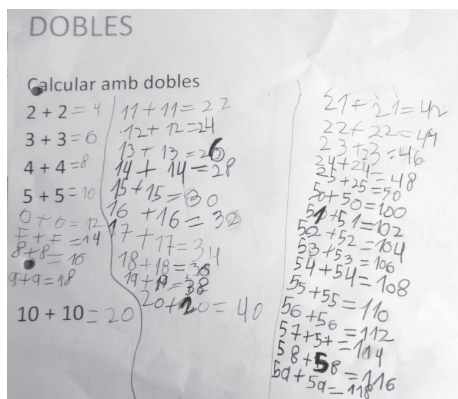 DOBLES
Calcular amb dobles
2 + 2 = 4
3 + 3 = 6
4 + 4 = 8
5 + 5 = 10
6 + 6 = 12
7 + 7 = 14
8 + 8 = 16
9 + 9 = 18
10 + 10 = 20
11 + 11 = 22
12 + 12 = 24
13 + 13 = 26
14 + 14 = 28
15 + 15 = 30
16 + 16 = 32
17 + 17 = 34
18 + 18 = 36
19 + 19 = 38
20 + 20 = 40
21 + 21 = 42
22 + 22 = 44
23 + 23 = 46
24 + 24 = 48
25 + 25 = 50
50 + 50 = 100
51 + 51 = 102
52 + 52 = 104
53 + 53 = 106
54 + 54 = 108
55 + 55 = 110
56 + 56 = 112
57 + 57 = 114
58 + 58 = 116
59 + 59 = 118